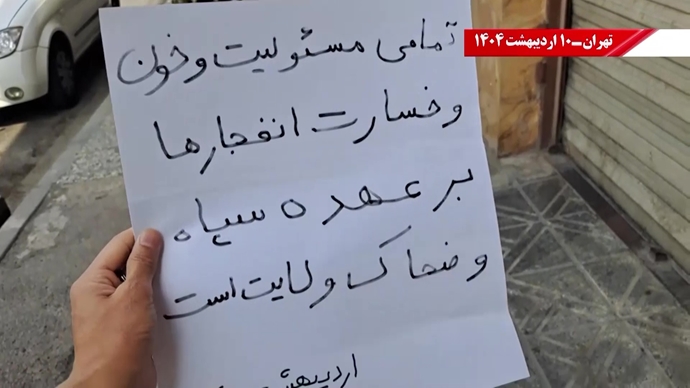 تهران_۱۰ اردیبهشت ۱۴۰۴
تمامی مسئولیت و خون
و خسارت انفجارها
بر عهده سپاه
و ضحاک ولایت است
اردیبهشت